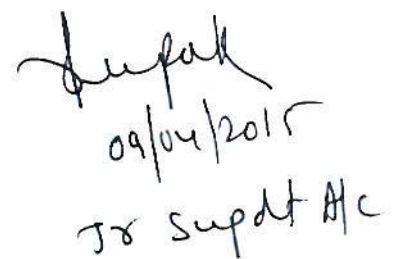 09/04/2015
Jr Supdt A/c